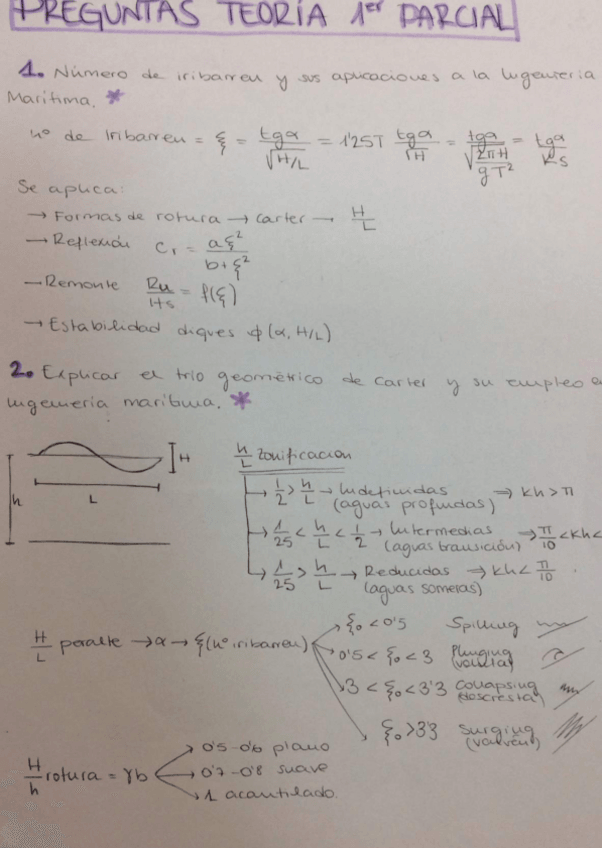 PREGUNTAS TEORÍA 1er PARCIAL
1. Número de iribarren y sus aplicaciones a la Ingeniería
Marítima. *
nº de Iribarren = ξ = tgα / √(H/L) = 1'25T tgα / √H = tgα / √(2πH / gT²) = tgα / Ks
Se aplica:
→ Formas de rotura → carter → H/L
→ Reflexión Cr = aξ² / b+ξ²
→ Remonte Ru/Hs = f(ξ)
→ Estabilidad diques ϕ(α, H/L)
2. Explicar el trío geométrico de Carter y su empleo e
Ingeniería marítima. *
H
h
L
h/L zonificación
→ 1/2 > h/L → Indefinidas ⇒ kh > π
(aguas profundas)
→ 1/25 < h/L < 1/2 → Intermedias ⇒ π/10 < kh <
(aguas transición)
→ 1/25 > h/L → Reducidas ⇒ kh < π/10
(aguas someras)
H/L peralte → α → ξ (nº iribarren)
ξ₀ < 0'5 Spilling
0'5 < ξ₀ < 3 Plunging
(voluta)
3 < ξ₀ < 3'3 Collapsing
(descresta)
ξ₀ > 3'3 Surging
(vaivén)
H/h rotura = γb
0'5-0'6 plano
0'7-0'8 suave
1 acantilado.